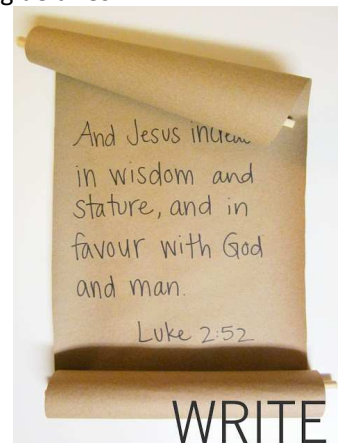 And Jesus
in wisdom and
stature, and in
favour with God
and man.
Luke 2:52
WRITE